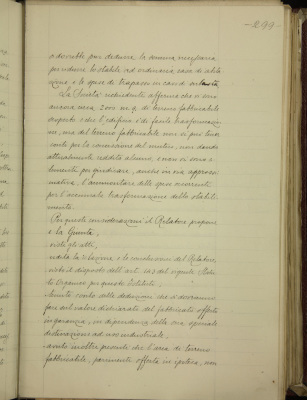 - 299 -
e dovrebbe poi dedursi la somma necessaria
per ridurre lo stabile ad ordinaria casa di abita
zione e le spese di trapasso in caso di
La Società richiedente afferma che vi sono
ancora circa 2000 mq. di terreno fabbricabile
scoperto e che l'edificio è di facile trasformazio
ne, ma del terreno fabbricabile non si può tener
conto per la concessione del mutuo, non dando
attualmente reddito alcuno, e non vi sono e
lementi per giudicare, anche in via approssi
mativa, l'ammontare delle spese occorrenti
per l'eventuale trasformazione dello stabili
mento.
Per queste considerazioni il Relatore propone
e la Giunta,
visti gli atti,
udita la relazione e le conclusioni del Relatore,
visto il disposto dell'art. del vigente Statu
to Organico per questo Istituto,
tenuto conto delle deduzioni che si dovranno
fare sul valore dichiarato del fabbricato offerto
in garanzia, in dipendenza della sua speciale
destinazione ad uso industriale,
avuto inoltre presente che l'area di terreno
fabbricabile, parimenti offerta in ipoteca, non